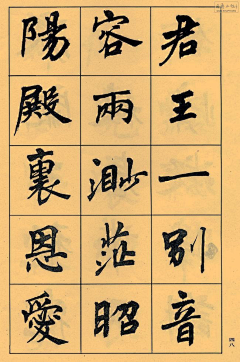 君王一别音
容兩渺茫昭
陽殿裏恩愛
四八